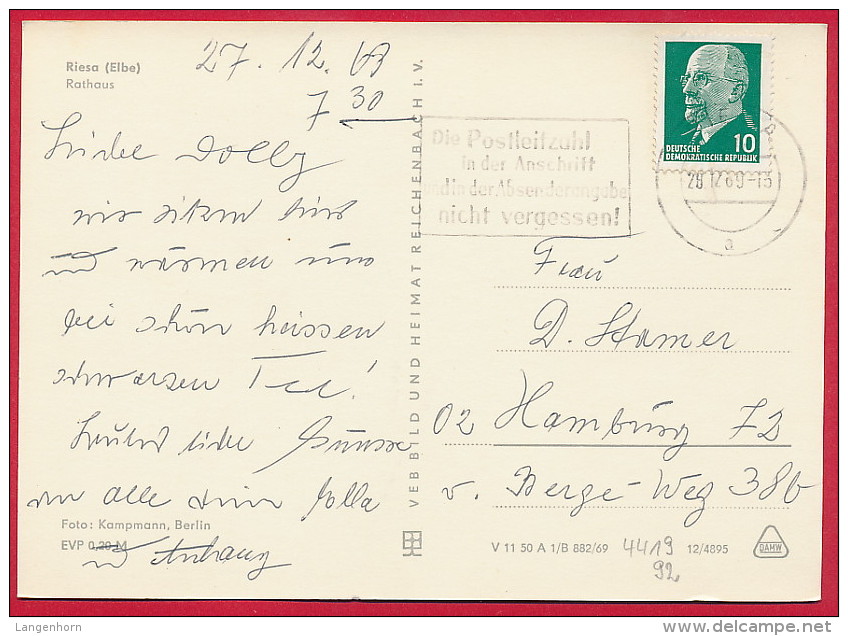 Riesa (Elbe)
Rathaus
27. 12. 69
7 30
Liebe Dolly
wir sitzen hier
und wärmen uns
bei schön heissen
schwarzen Tee!
Grüsse
an alle deine Jolla
und Anhang
Foto: Kampmann, Berlin
EVP 0,20 M
VEB BILD UND HEIMAT REICHENBACH I. V.
Die Postleitzahl
in der Anschrift
und in der Absenderangabe
nicht vergessen!
10
DEUTSCHE
DEMOKRATISCHE REPUBLIK
29.12.69-15
a
Frau
D. Stamer
02 Hamburg 72
v. Berge-Weg 38b
V 11 50 A 1/B 882/69
4419
92
12/4895
DAHW
Langenhorn
www.delcampe.net